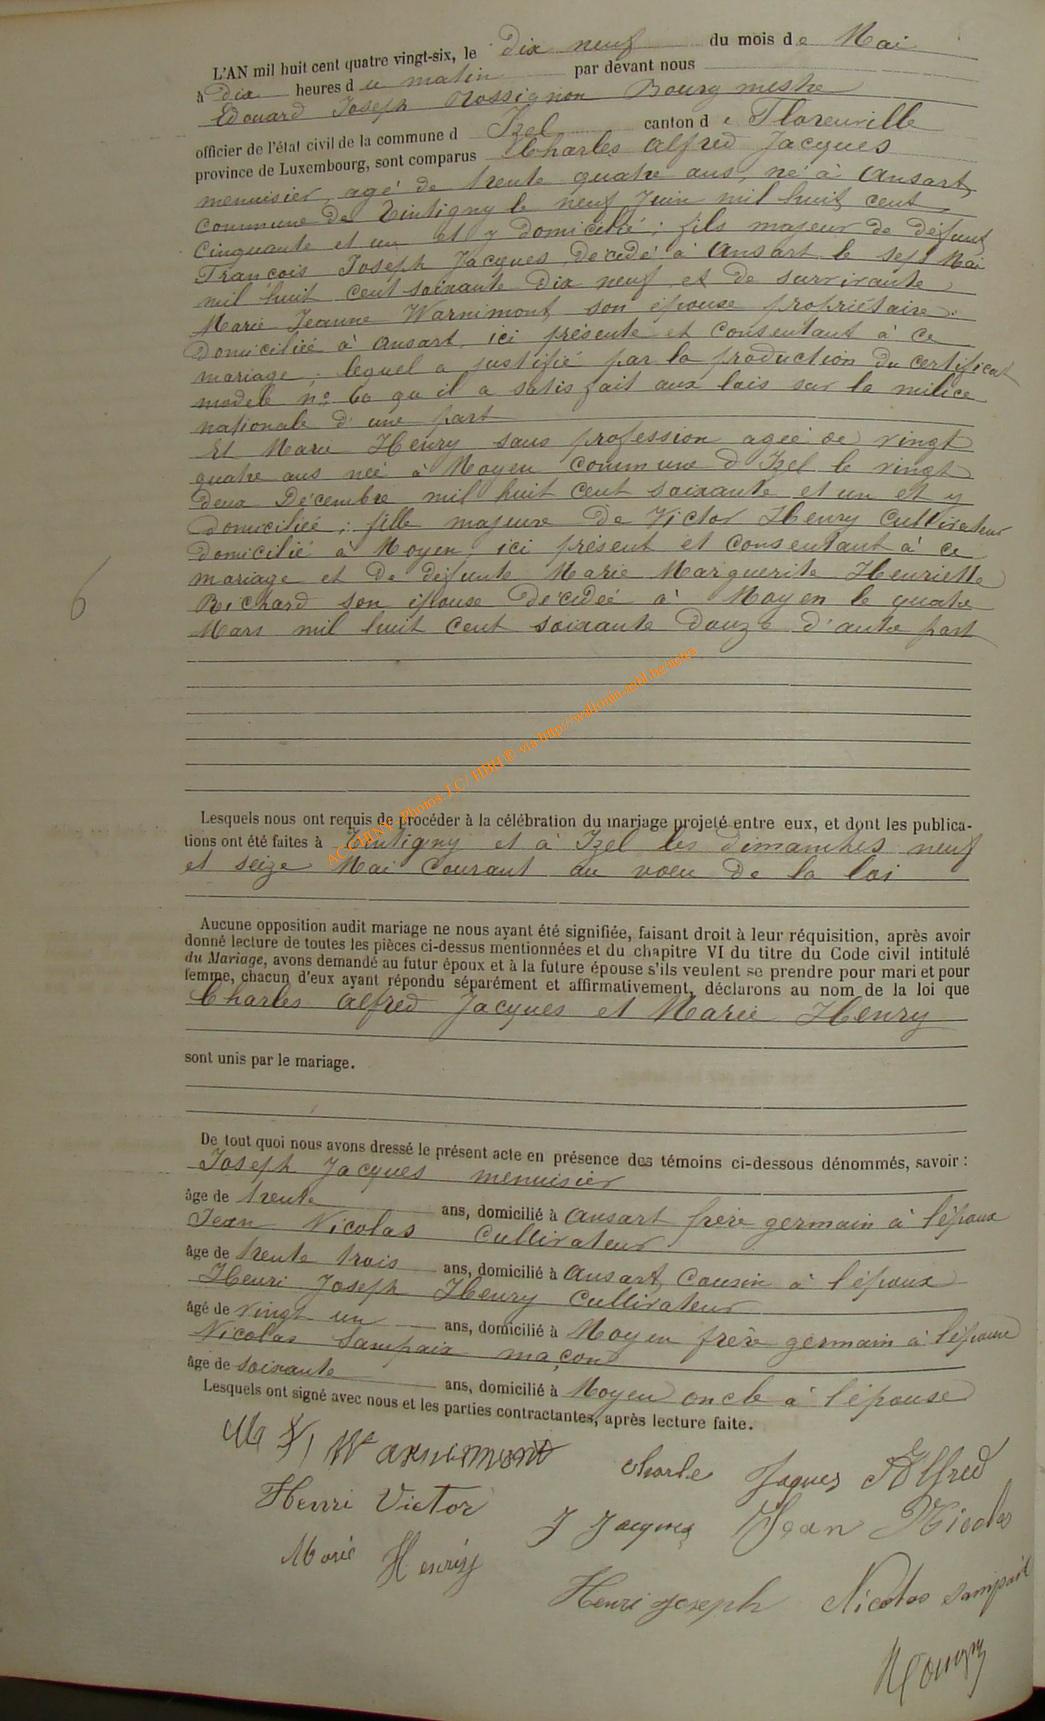 L'AN mil huit cent quatre vingt-six, le dix neuf du mois de Mai
à dix heures du matin par devant nous
Edouard Joseph Rossignon Bourgmestre
officier de l'état civil de la commune d Izel canton de Florenville
province de Luxembourg, sont comparus Charles Alfred Jacques
menuisier, agé de trente quatre ans, né à Ansart,
commune de Tintigny le neuf Juin mil huit cent
cinquante et un et y domicilié; fils majeur de défunt
François Joseph Jacques décédé à Ansart le sept Mai
mil huit cent soixante dix neuf et de survivante
Marie Jeanne Warnimont, son épouse propriétaire
domiciliée à Ansart ici présente et consentant à ce
mariage; lequel a justifié par la production du certificat
modele n° 60 qu il a satisfait aux lois sur la milice
nationale d'une part
Et Marie Henry sans profession agée de vingt
quatre ans née à Moyen commune d'Izel le vingt
deux Décembre mil huit cent soixante et un et y
domiciliée; fille majeure de Victor Henry Cultivateur
domicilié à Moyen, ici présent et consentant à ce
mariage et de défunte Marie Marguerite Henriette
Richard son épouse décédée à Moyen le quatre
Mars mil huit cent soixante douze d'autre part
6
Lesquels nous ont requis de procéder à la célébration du mariage projeté entre eux, et dont les publica-
tions ont été faites à Tintigny et à Izel les dimanches neuf
et seize Mai courant au voeu de la loi
Aucune opposition audit mariage ne nous ayant été signifiée, faisant droit à leur réquisition, après avoir
donné lecture de toutes les pièces ci-dessus mentionnées et du chapitre VI du titre du Code civil intitulé
du Mariage, avons demandé au futur époux et à la future épouse s'ils veulent se prendre pour mari et pour
femme, chacun d'eux ayant répondu séparément et affirmativement, déclarons au nom de la loi que
Charles Alfred Jacques et Marie Henry
sont unis par le mariage.
De tout quoi nous avons dressé le présent acte en présence des témoins ci-dessous dénommés, savoir :
Joseph Jacques menuisier
âge de trente ans, domicilié à Ansart frère germain à l'époux
Jean Nicolas Cultivateur
âge de trente trois ans, domicilié à Ansart, cousin à l'époux
Henri Joseph Henry Cultivateur
âgé de vingt un ans, domicilié à Moyen frère germain à l'épouse
Nicolas Sampaix maçon
âge de soixante ans, domicilié à Moyen oncle à l'épouse
Lesquels ont signé avec nous et les parties contractantes, après lecture faite.
Charle Jaques Alfred
Henri Victor
J Jacques Jean Nicolas
Marie Henry
Henri joseph Nicolas Sampaix